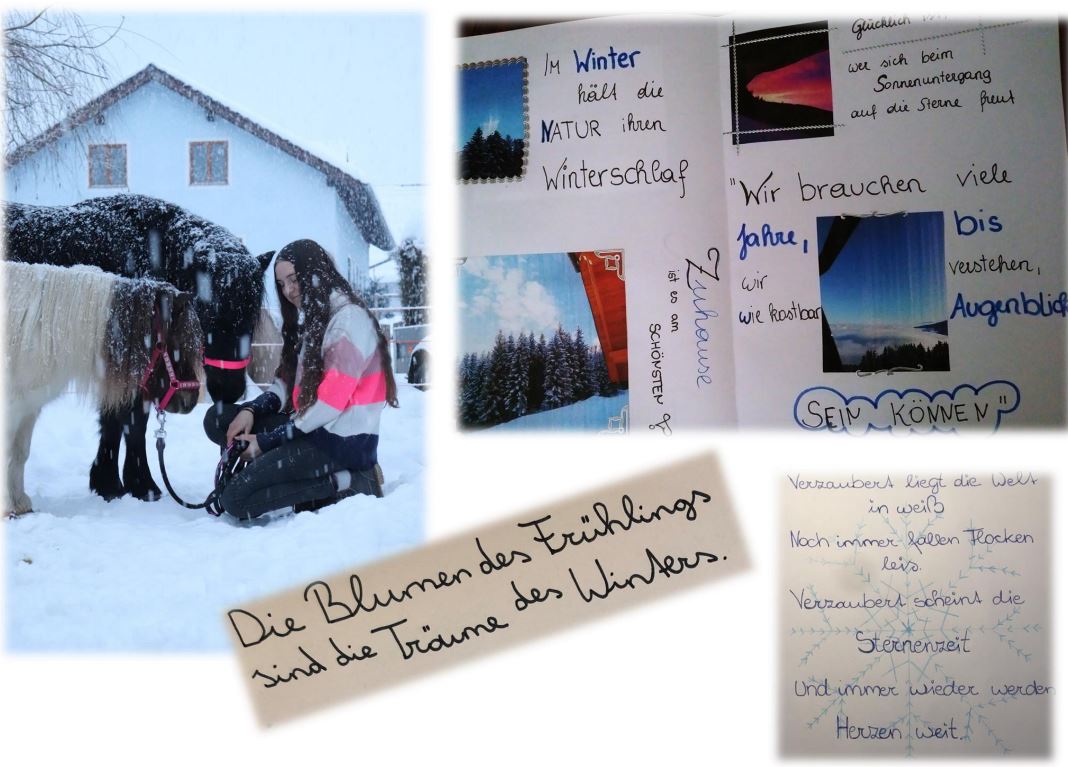 Im Winter
hält die
NATUR ihren
Winterschlaf
Zuhause
ist es am
SCHÖNSTEN
Glücklich
wer sich beim
Sonnenuntergang
auf die Sterne freut
"Wir brauchen viele
Jahre, bis
wir verstehen,
wie kostbar Augenblick
SEIN KÖNNEN"
Die Blumen des Frühlings
sind die Träume des Winters.
Verzaubert liegt die Welt
in weiß
Noch immer fallen Flocken
leis.
Verzaubert scheint die
Sternenzeit
Und immer wieder werden
Herzen weit.